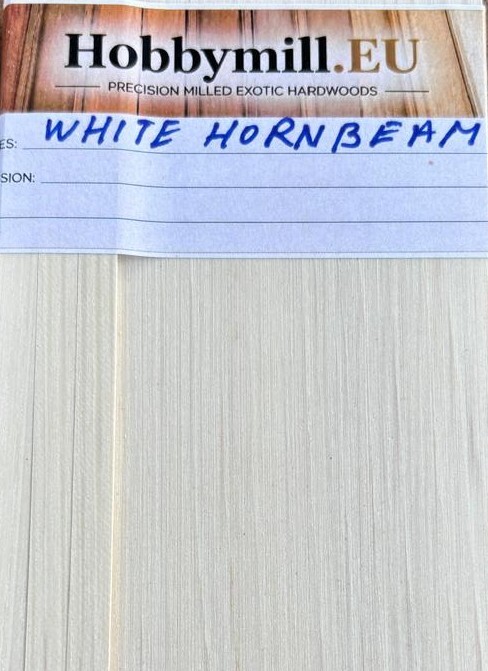 Hobbymill.EU
PRECISION MILLED EXOTIC HARDWOODS
ES: WHITE HORNBEAM
SION: